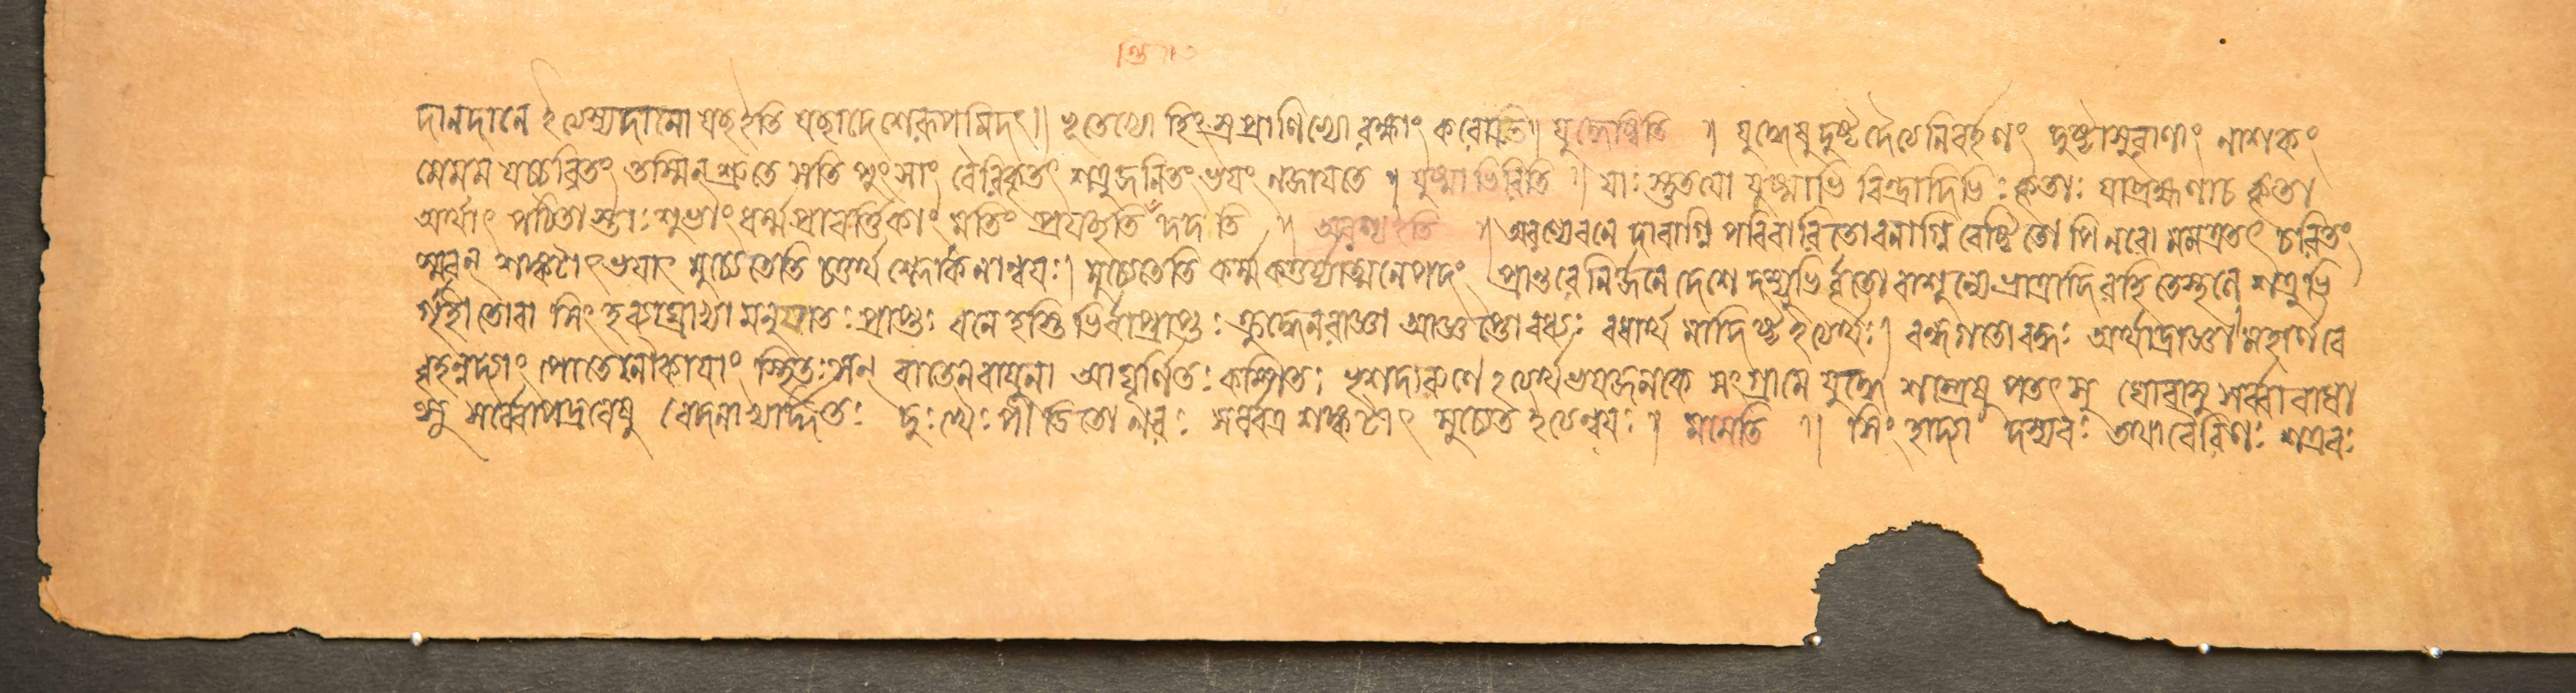 দানদানে ইত্যস্যদানো যছইতি যছাদেশেরূপমিদং॥ ভূতেভ্যো হিংস্রপ্রাণিভ্যো রক্ষাং করোমতি॥ যুদ্ধেষ্বিতি ॥ যুদ্ধেষু দুষ্টদৈত্যেনিবর্হণং দুষ্টাসুরাণাং নাশকং
মেমম যচ্চরিতং তস্মিন্ শ্রুতে সতি পুংসাং বৈরিকৃতং শত্রুজনিতং ভয়ং নজায়তে ॥ যুষ্মাভিরিতি ॥ যাঃ স্তুতয়ো যুষ্মাভি রিন্দ্রাদিভিঃ কৃতাঃ যাব্রহ্মণাচ কৃতা
অর্থাৎ পঠিতাস্তাঃ শুভাং ধর্ম্মপ্রাবর্ত্তিকাং মতিং প্রযচ্ছতি দদতি ॥ অরণ্যইতি ॥ অরণ্যেবনে দাবাগ্নি পরিবারিতোবনাগ্নি বেষ্টিতো পি নরো মমত্রতৎ চরিতং
স্মরন্ শঙ্কটাৎ ভয়াৎ মুচ্যেতেতি চতুর্থ শ্লোকেনান্বয়ঃ। মুচ্যেতেতি কর্ম্মকর্ত্তর্য্যাত্মনেপদং প্রান্তরে নির্জনে দেশে দস্যুভির্বৃতো বাশূন্যে ভ্রাত্রাদি রহিতেস্থানে শত্রুভি
র্গৃহীতোবা সিংহব্যাঘ্রাভ্যা মনুযাতঃ প্রাপ্তঃ বনে হস্তি ভির্বাপ্রাপ্তঃ ক্রুদ্ধেনরাজ্ঞা আজ্ঞপ্তো বধ্যঃ বধার্থ মাদিষ্ট ইত্যর্থঃ। বন্ধগতো বদ্ধঃ অর্থাদ্রাজ্ঞা মহার্ণবে
বৃহন্নদ্যাং পোতেনৌকায়াং স্থিতঃসন্ বাতেনবায়ুনা আঘূর্ণিতঃ কম্পিতঃ ভৃশদারুণে ইত্যর্থভয়জনকে সংগ্রামে যুদ্ধে শস্ত্রেষু পতৎসু ঘোরাসু সর্ব্বাবাধা
সু সর্ব্বোপদ্রবেষু বেদনাভ্যর্দ্দিতঃ দুঃখৈঃ পীডিতো নরঃ সর্বত্র শঙ্কটাৎ মুচ্যেত ইত্যন্বয়ঃ ॥ মমেতি ॥ সিংহাদ্যা দস্যবঃ তথাবৈরিণঃ শত্রবঃ